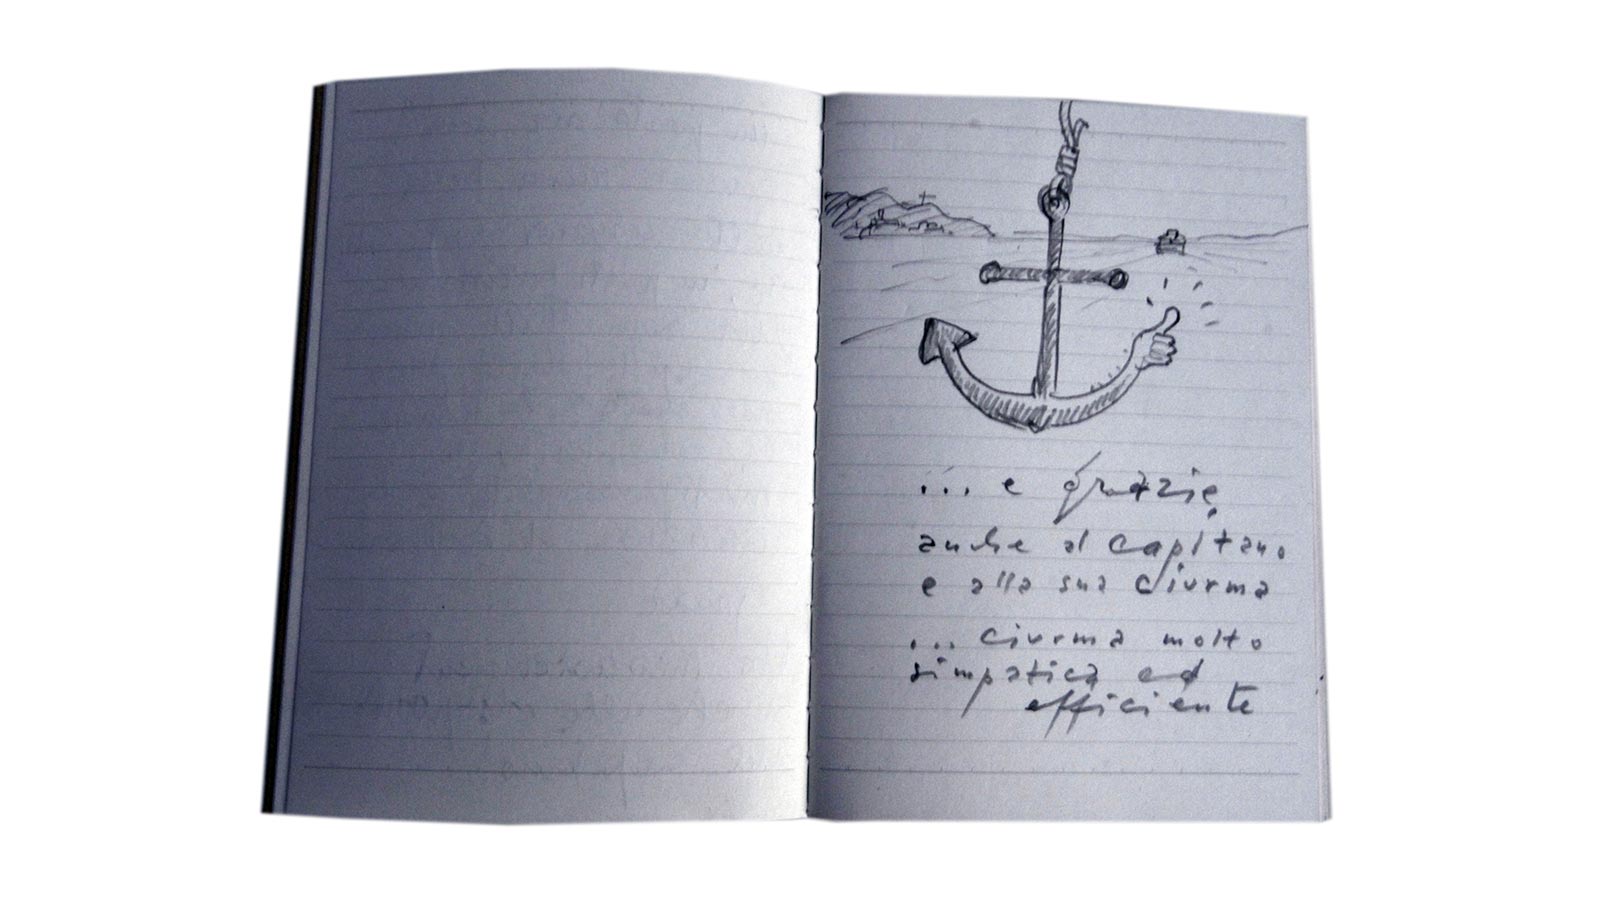 ... e grazie,
anche al capitano
e alla sua ciurma
... ciurma molto
simpatica ed
efficiente